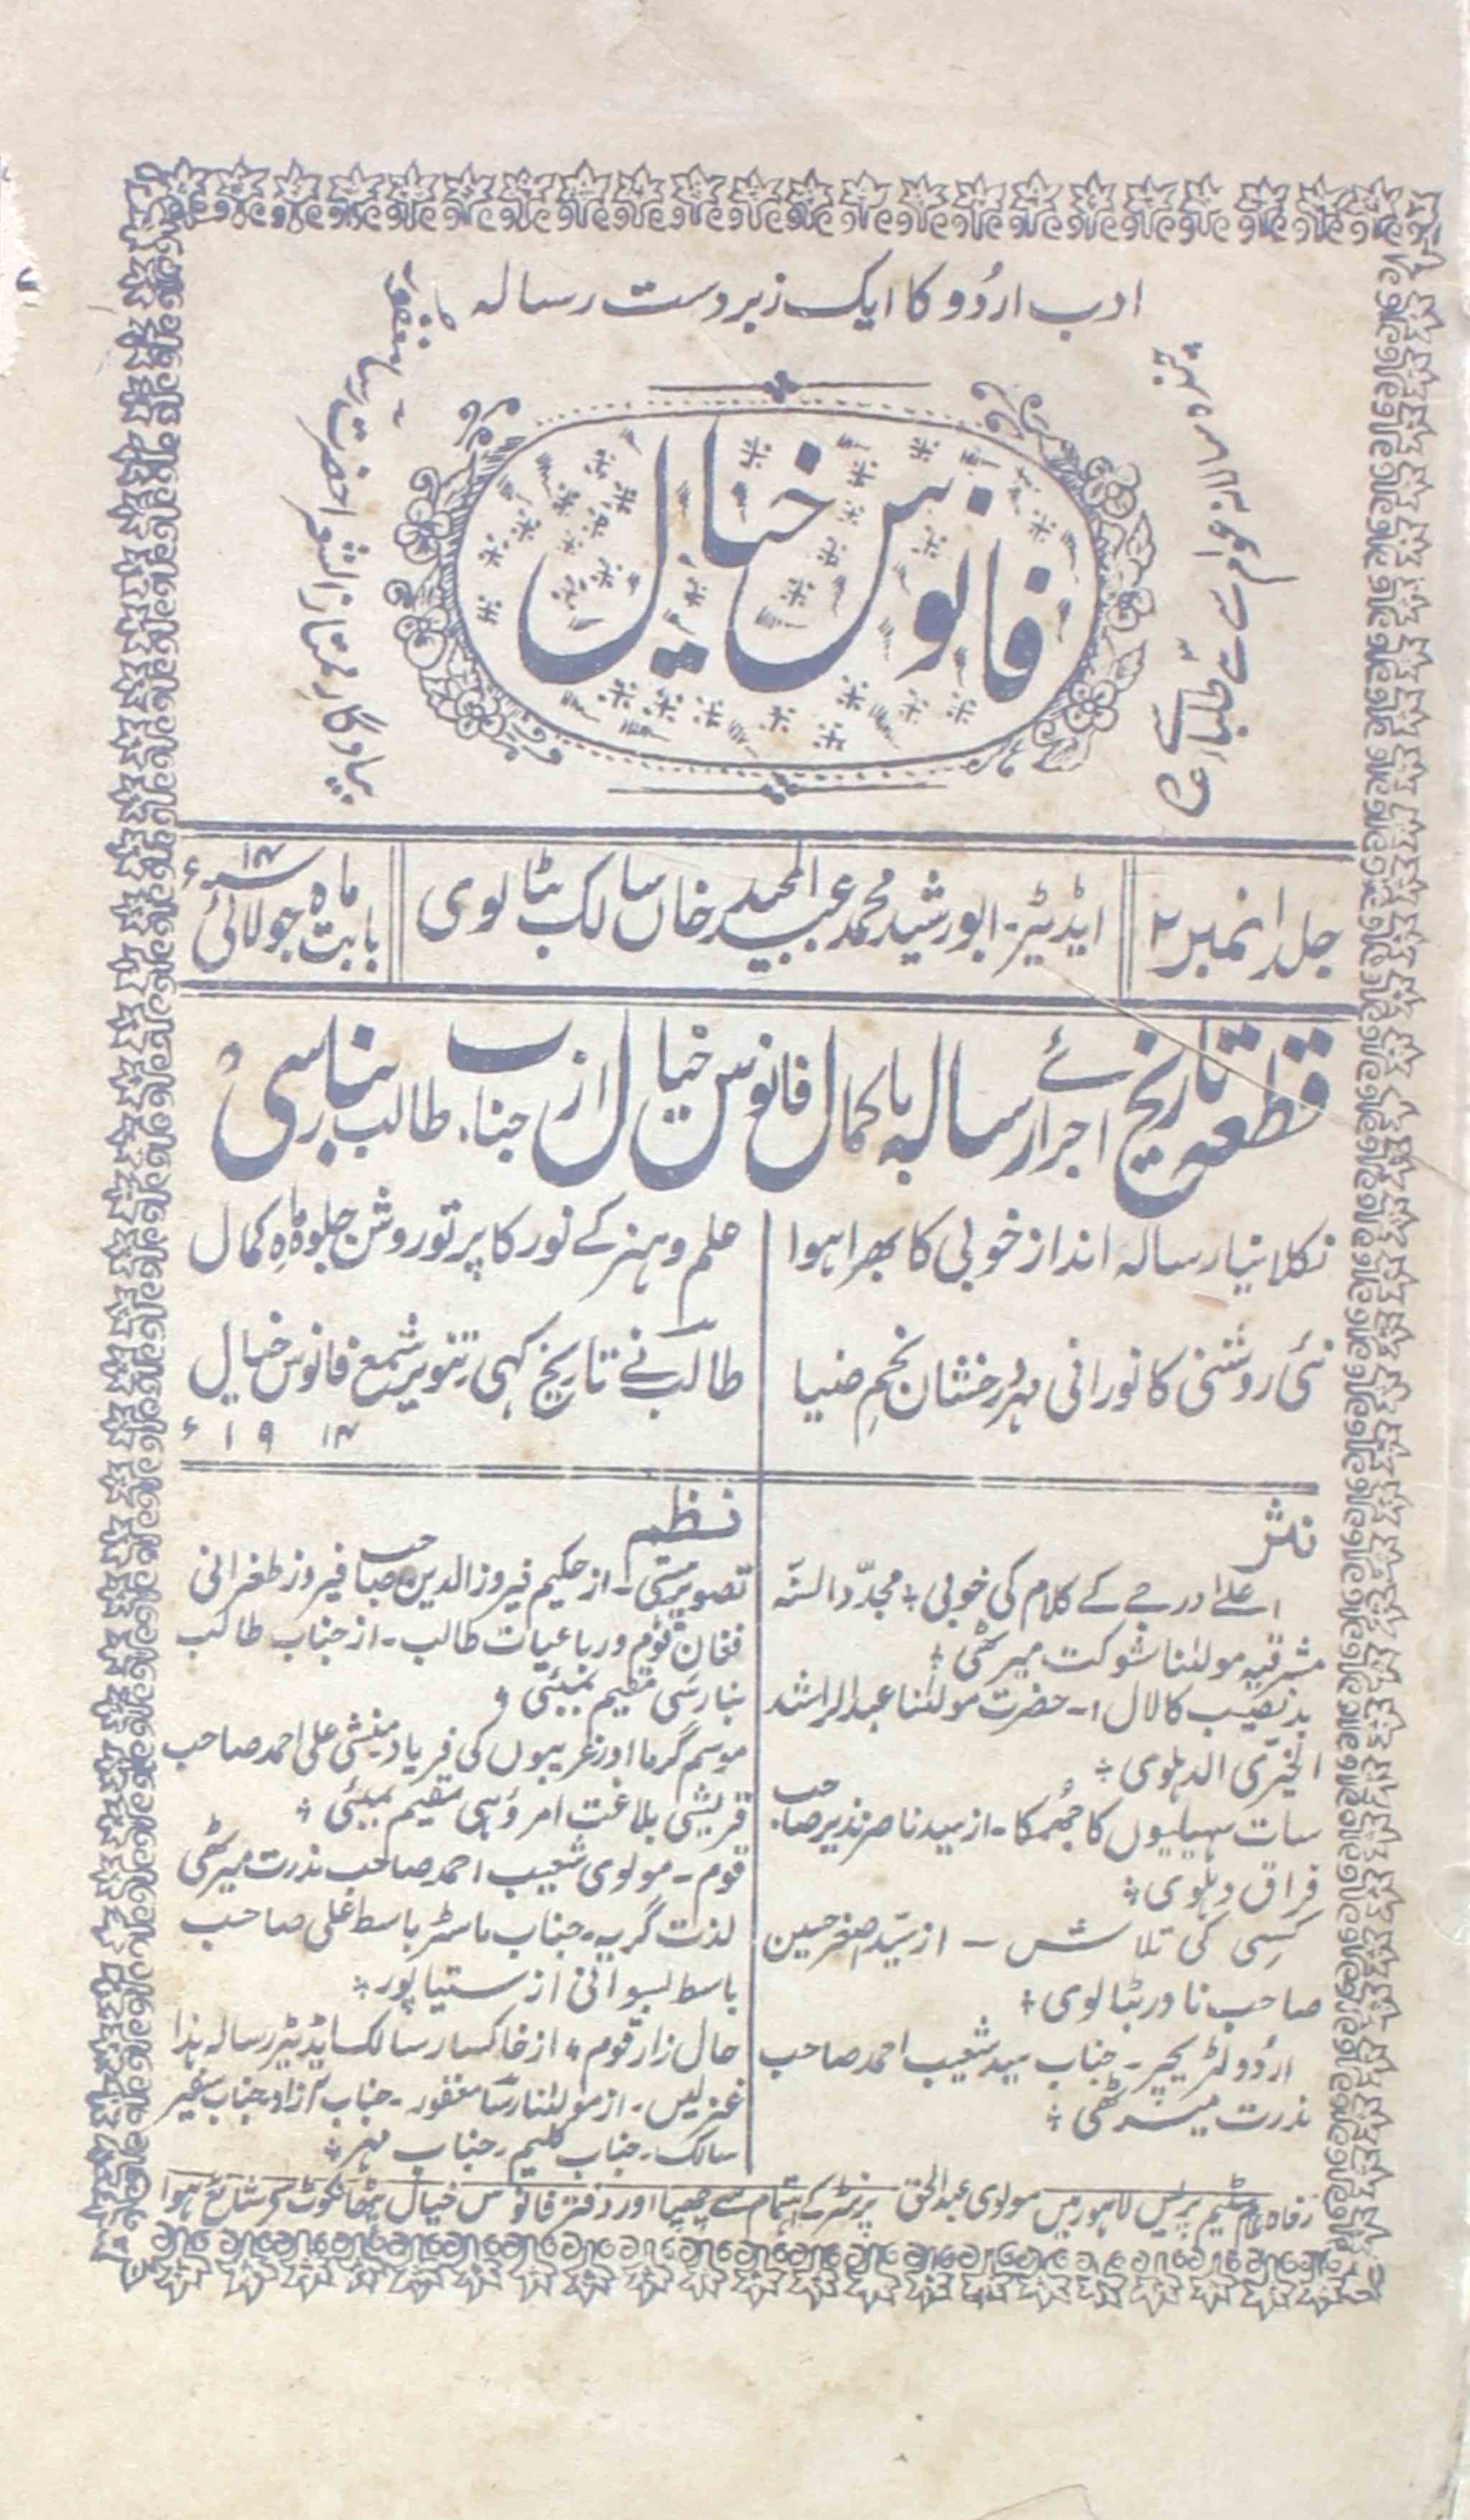 ادب اردُو کا ایک زبردست رسالہ
چندہ سالانہ عوام سے طلباء سے
فانوس خیال
یادگار ممتاز الشعراء حضرت رسا مغفور
جلد ۱ نمبر ۲
ایڈیٹر۔ ابو رشید محمد عبد المجید خاں سالک بٹالوی
بابت ماہ جولائی ۱۴ء
قطعہ تاریخ اجرائے رسالہ باکمال فانوس خیال از جناب طالب بنارسی
نکلا نیا رسالہ انداز خوبی کا بھرا ہوا
علم و ہنر کے نور کا پرتو روشن جلوہ ماہِ کمال
نئی روشنی کا نورانی مہر درخشان نجمِ ضیا
طالب نے تاریخ کہی تنویر شمع فانوس خیال
۱۹۱۴ء
نثر
اعلےٰ درجے کے کلام کی خوبی ۔ مجدّد السنہ
مشرقیہ مولٰنا شوکت میرٹھی
بدنصیب کا لال۔ حضرت مولٰنا عبدالراشد
الخیری الدہلوی
سات سہیلیوں کا جھُمکا۔ از سید ناصر نذیر صاحب
فراق دہلوی
کسِی کی تلاش ۔ از سیّد صغر حسین
صاحب نادر بٹالوی
اردُو لٹریچر۔ جناب سید شعیب احمد صاحب
ندرت میرٹھی
نظم
تصویر مستی۔ از حکیم فیروز الدین صاحب فیروز طغرائی
فغانِ قوم و رباعیات طالب۔ از جناب طالب
بنارسی مقیم بمبئی
موسم گرما اور غریبوں کی فریاد منشی علی احمد صاحب
قریشی بلاغت امروہی مقیم بمبئی
قوم۔ مولوی شعیب احمد صاحب ندرت میرٹھی
لذت گریہ۔ جناب ماسٹر باسط علی صاحب
باسط بسوانی از ستیاپور
حال زار قوم ، از خاکسار سالک ایڈیٹر رسالہ ہذا
غزلیں۔ از مولٰنا رسا مغفور۔ جناب آزاد جناب سفیر
سالک۔ جناب کلیم۔ جناب مہر
رفاہ عام سٹیم پریس لاہور میں مولوی عبدالحق پرنٹر کے اہتمام سے چھپا اور دفتر فانوس خیال پٹھانکوٹ سے شائع ہوا